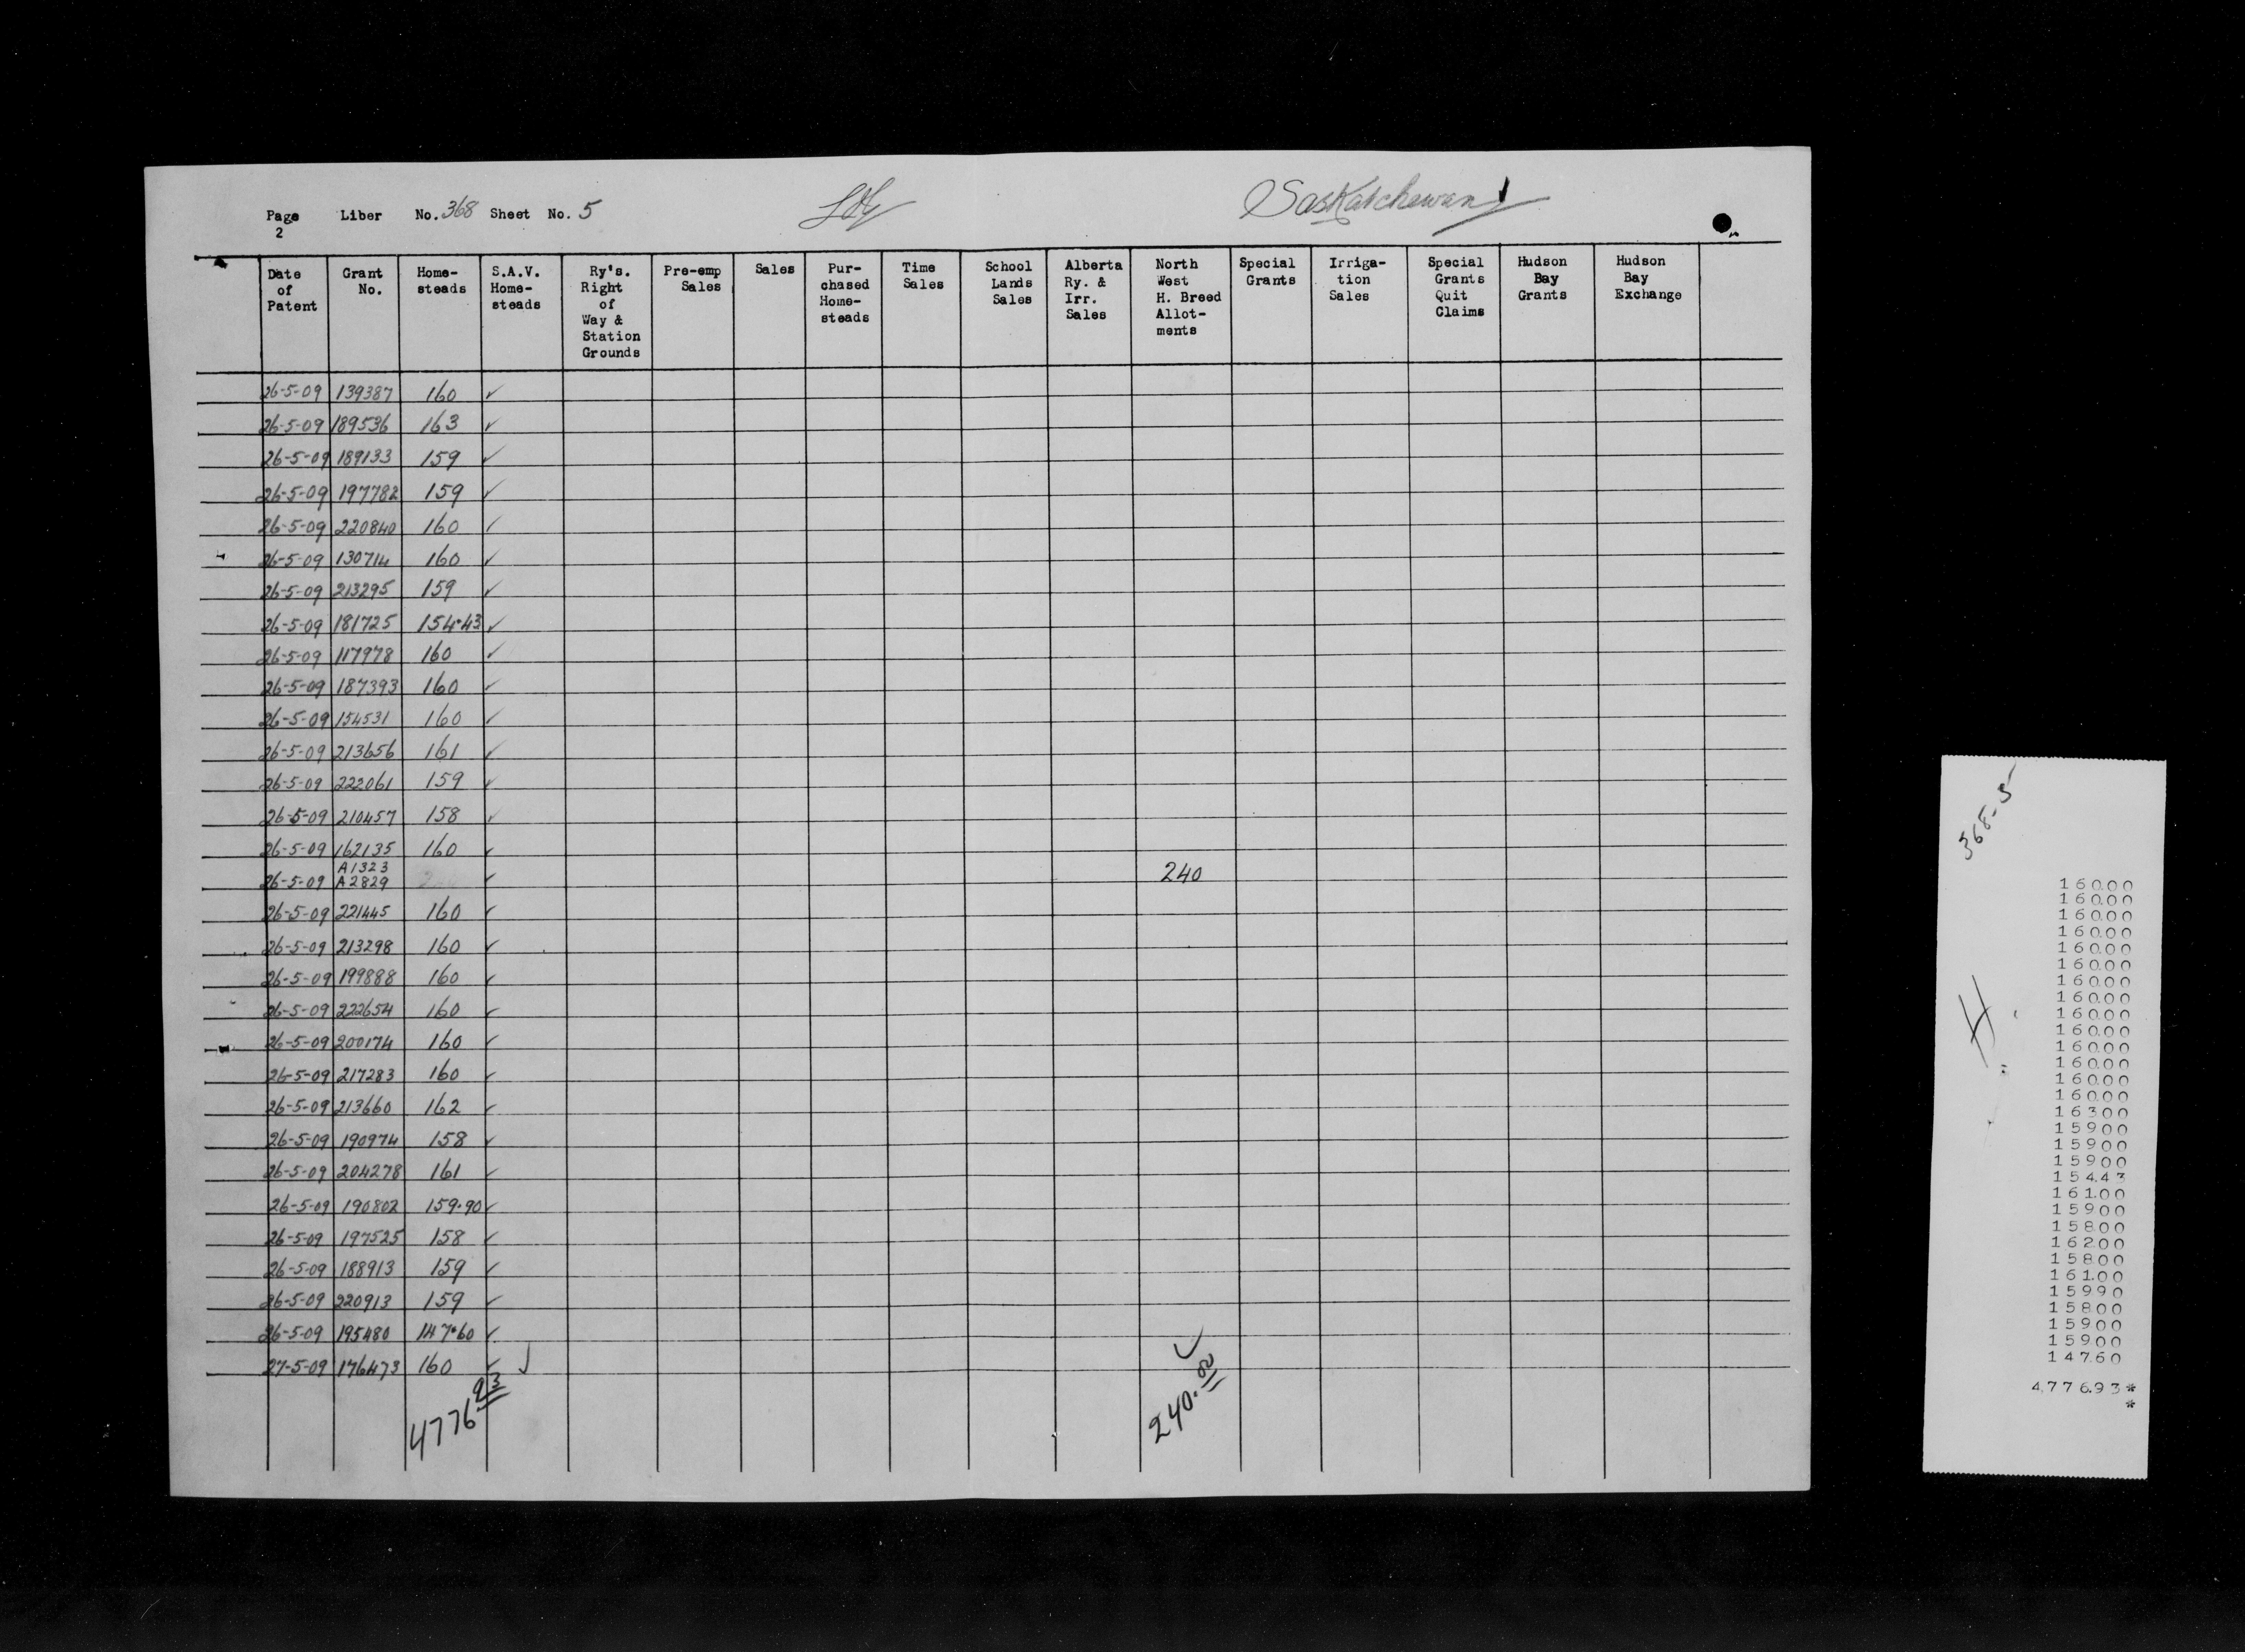 Page 2 Liber No. 368 Sheet No. 5 Saskatchewan
Date of Patent | Grant No. | Home-steads | S.A.V. Home-steads | Ry's. Right of Way & Station Grounds | Pre-emp Sales | Sales | Pur-chased Home-steads | Time Sales | School Lands Sales | Alberta Ry. & Irr. Sales | North West H. Breed Allot-ments | Special Grants | Irriga-tion Sales | Special Grants Quit Claims | Hudson Bay Grants | Hudson Bay Exchange
26-5-09 139387 160 ✓
26-5-09 189536 163 ✓
26-5-09 189133 159 ✓
26-5-09 197782 159 ✓
26-5-09 220840 160 ✓
26-5-09 130714 160 ✓
26-5-09 213295 159 ✓
26-5-09 181725 154.43 ✓
26-5-09 117978 160 ✓
26-5-09 187393 160 ✓
26-5-09 154531 160 ✓
26-5-09 213656 161 ✓
26-5-09 222061 159 ✓
26-5-09 210457 158 ✓
26-5-09 162135 160 ✓
A1323
26-5-09 A2829 ✓ 240
26-5-09 221445 160 ✓
26-5-09 213298 160 ✓
26-5-09 199888 160 ✓
26-5-09 222654 160 ✓
26-5-09 200174 160 ✓
26-5-09 217283 160 ✓
26-5-09 213660 162 ✓
26-5-09 190974 158 ✓
26-5-09 204278 161 ✓
26-5-09 190802 159.90 ✓
26-5-09 197525 158 ✓
26-5-09 188913 159 ✓
26-5-09 220913 159 ✓
26-5-09 195480 147.60 ✓
27-5-09 176473 160 ✓ ✓
4776.93 240.00 ✓
368-5
H
160.00
160.00
160.00
160.00
160.00
160.00
160.00
160.00
160.00
160.00
160.00
160.00
160.00
160.00
163.00
159.00
159.00
159.00
154.43
161.00
159.00
158.00
162.00
158.00
161.00
159.90
158.00
159.00
159.00
147.60
4,776.93*
*